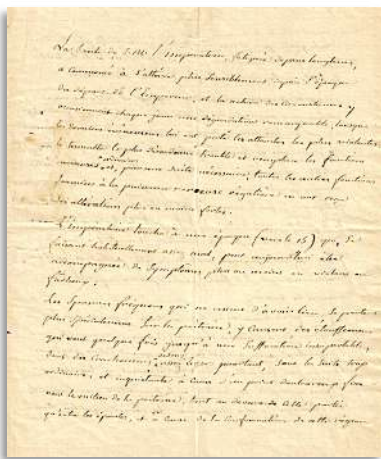 La Santé de S. M. l'Impératrice, fatiguée depuis longtems,
a commencé à s'altérer plus sensiblement depuis l'époque
du départ de l'Empereur, et la action des circonstances y
occasionnent chaque jour une dégradation remarquable, lorsque
les dernières lui ont porté les atteintes les plus violentes
le sommeil le plus troublé et
nerveuses et, par une suite nécessaire, toutes les autres fonctions
soumises à la puissance nerveuse en ont reçu
des altérations plus ou moins fortes.
L'Impératrice touche à une époque (vers le 15) qui, se
passant habituellement assez mal, peut aujourd'hui être
accompagnée de symptômes plus ou moins
fâcheux.
Les spasmes fréquens qui ne cessent d'avoir lieu, se portent
plus spécialement sur la poitrine, y causent des étouffemens
qui vont quelque fois jusqu'à une suffocation insupportable,
dans des assez léger pourtant, dont la suite trop
ordinaire, et inquiétante à cause d'un point douloureux fixe
vers le milieu de la poitrine, tout au dessous de cette partie
qu'entre les épaules, et à cause de la conformation de cette région